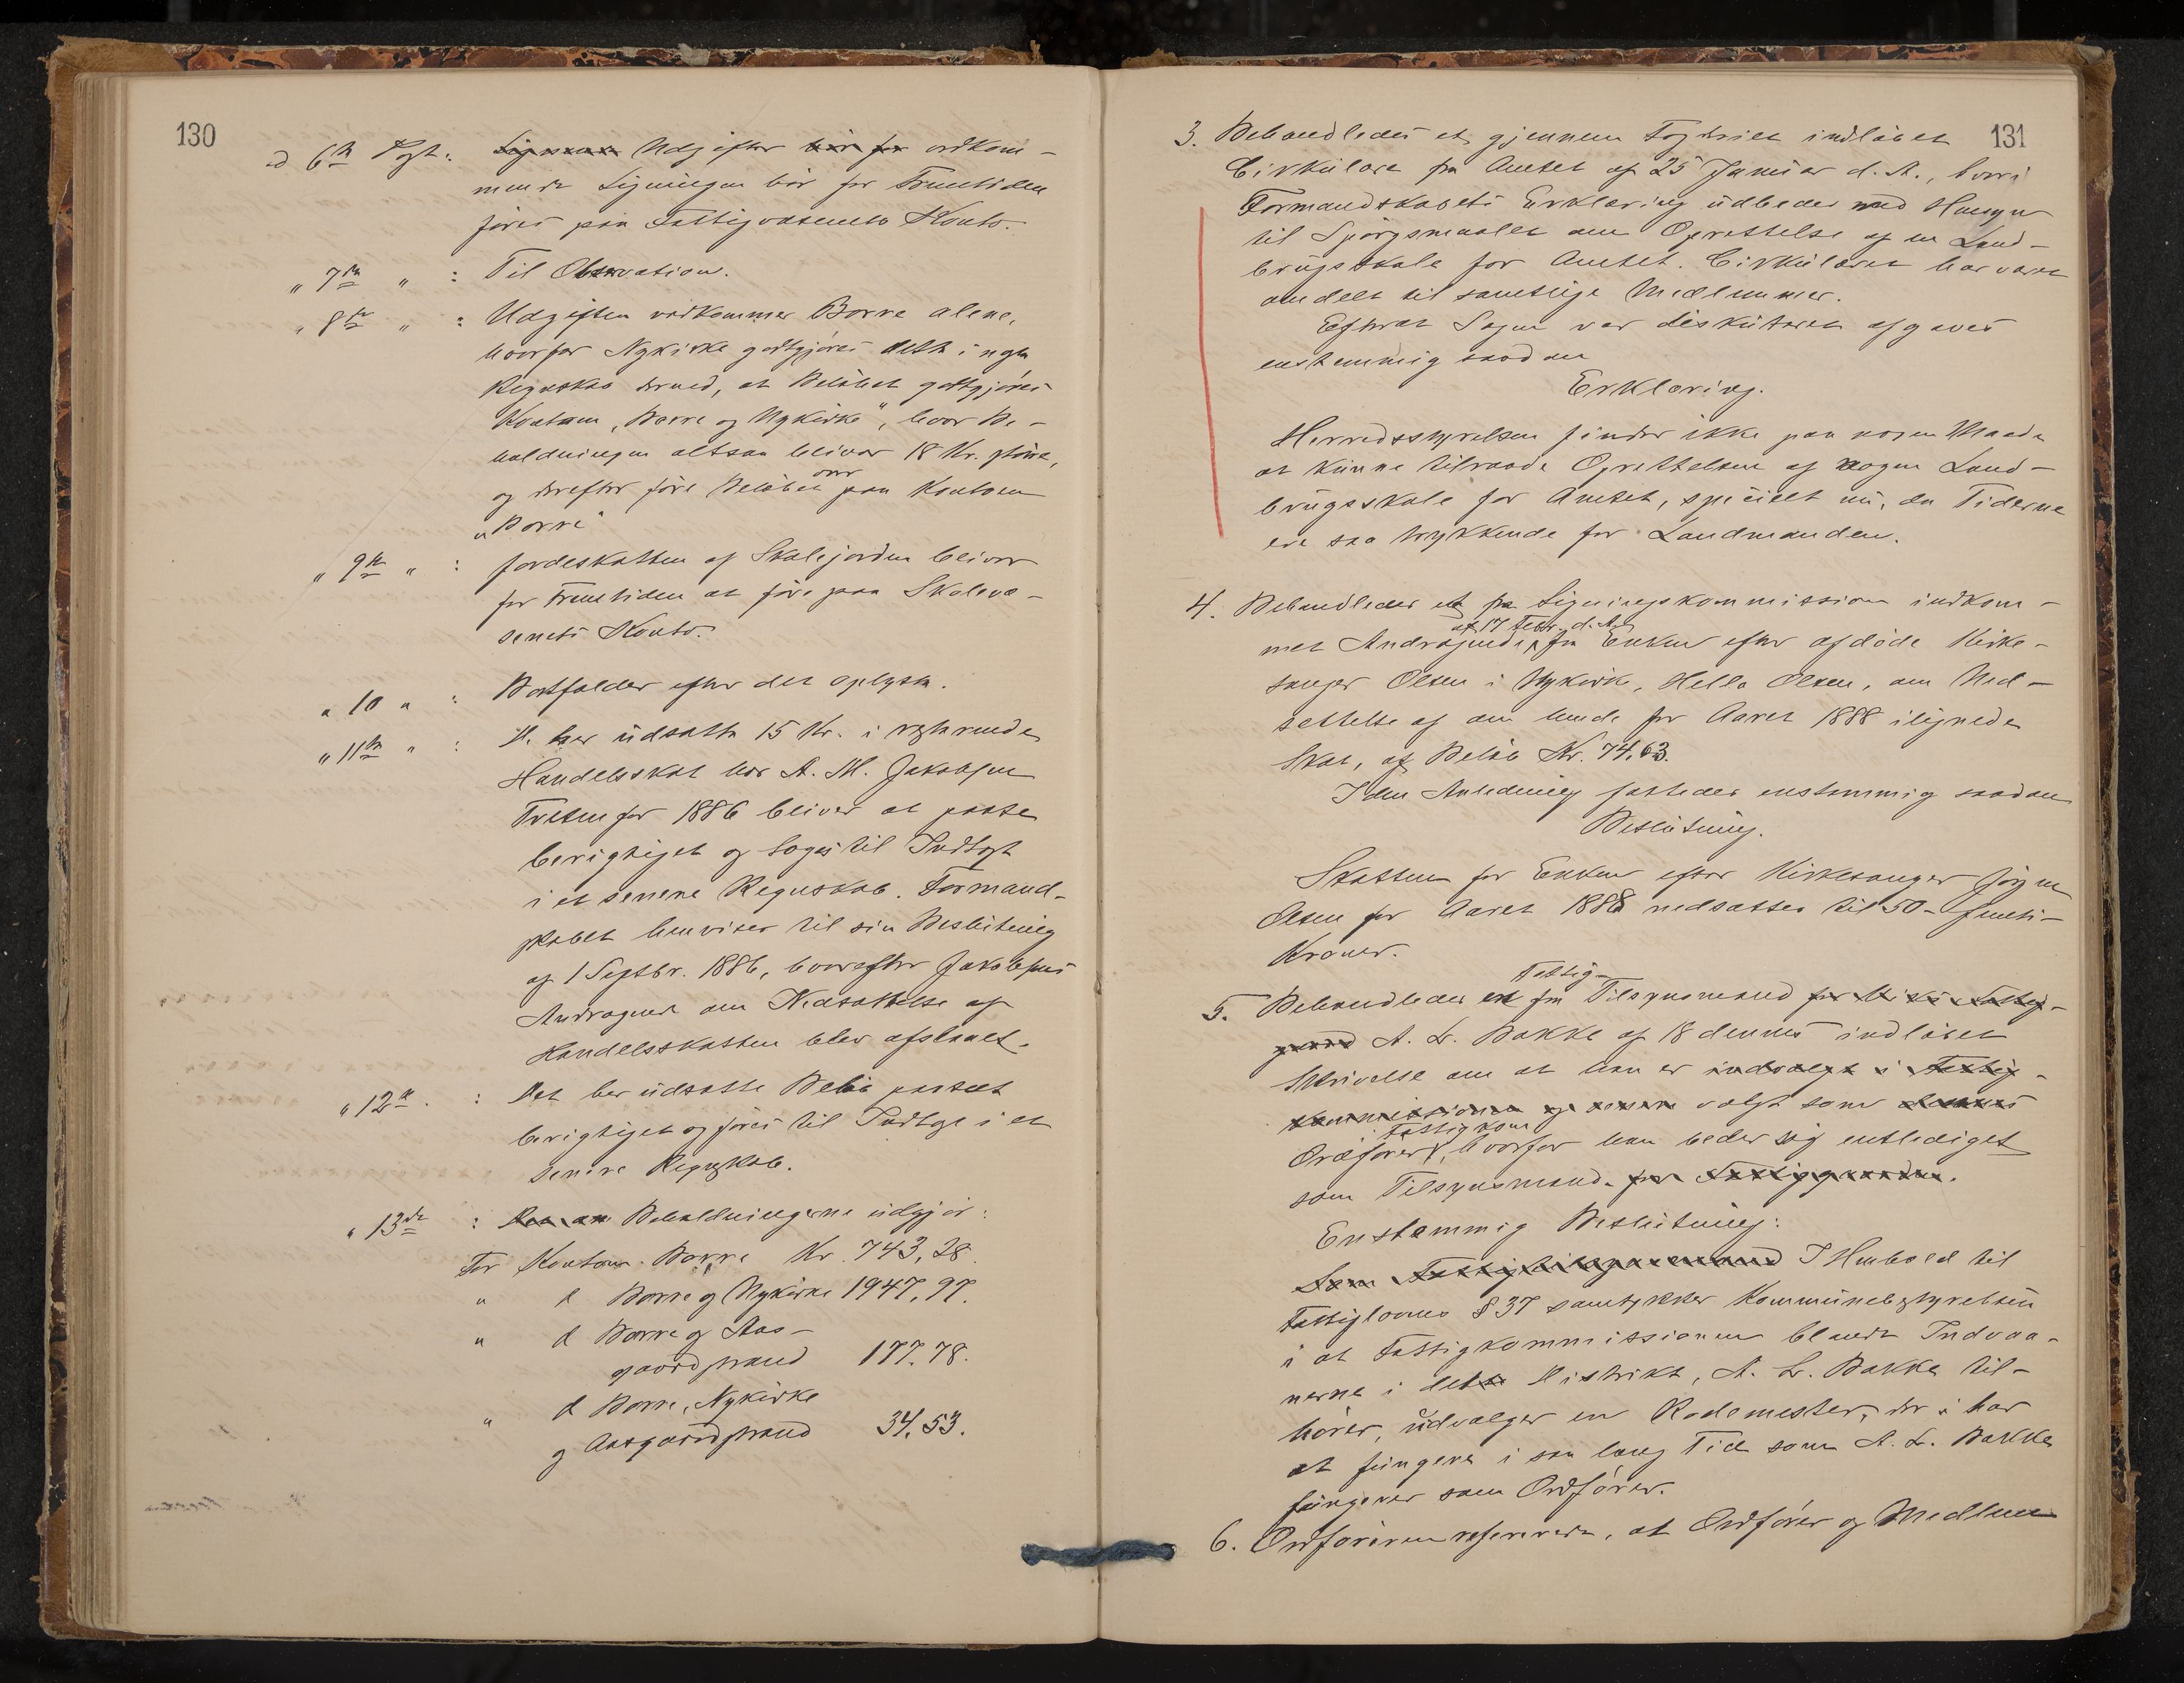 130
ad 6te Post: Udgifter vedkom-
mende Ligningen bör for Fremtiden
föres paa Fattigvæsenets Konto.
„ 7de „ : Til Observation.
„ 8de „ : Udgiften vedkommer Borre alene,
hvorfor Nykirke godtgjöres dette i nyt
Regnskab derved, at Belöbet godtgjöres
Kontoen „Borre og Nykirke", hvor Be-
holdningen altsaa bliver 18 Kr. större,
og derefter före Belöbet over paa Kontoen
„Borre"
„ 9de „ : Jordeskatten af Skolejorden bliver
for Fremtiden at före paa Skolevæ-
senets Konto.
„ 10 „ : Bortfalder efter det oplyste.
„ 11te „ : De her udsatte 15 Kr. i resterende
Handelsskat hos A. M. Jakobsen
for 1886 bliver at paase
berigtiget og tages til Indtægt
i et senere Regnskab. Formand-
skabet henviser til sin Beslutning
af 1 Septbr. 1886, hvorefter Jakobsens
Andragende om Nedsættelse af
Handelsskatten blev afslaaet.
„ 12te . : Det her udsatte Belöb paaseet
berigtiget og föres til Indtægt i et
senere Regnskab.
„ 13de : Beholdningerne udgjör:
For Kontoen Borre Kr. 743,28.
„ d Borre og Nykirke 1947,97.
„ d Borre og Aas-
gaardstrand 177.78.
„ d Borre, Nykirke
og Aasgaardstrand 34.53.
131
3. Behandledes et gjennem Fogderiet indlöbet
Cirkulære fra Amtet af 25 Januar d. A., hvori
Formandskabets Erklæring udbedes med Hensyn
til Spörgsmaalet om Oprettelse af en Land-
brugsskole for Amtet. Cirkulæret har været
omdelt til samtlige Medlemmer.
Efterat Sagen var diskuteret afgaves
enstemmig saadan
Erklæring.
Herredsstyrelsen finder ikke paa nogen Maade
at kunne tilraade Oprettelsen af nogen Land-
brugsskole for Amtet, specielt nu, da Tiderne
ere saa trykkende for Landmanden.
4. Behandledes et fra Ligningskommissionen indkom-
met Andragende af 17 Febr. d. A. fra Enken efter afdöde Kirke-
sanger Olsen i Nykirke, Helle Olsen, om Ned-
settelse af den hende for Aaret 1888 ilignede
Skat, af Belöb Kr. 74.63.
I den Anledning fattedes enstemmig saadan
Beslutning.
Skatten for Enken efter Kirkesanger Jörgen
Olsen for Aaret 1888 nedsættes til 50 - femti-
Kroner.
5. Behandledes en fra Fattig-Tilsynsmand
A. L. Bakke af 18 dennes indlöbet
Skrivelse om at han er
valgt som
Ordförer i Fattigkom, hvorfor han beder sig entlediget
som Tilsynsmand.
Enstemmig Beslutning:
I Henhold til
Fattiglovens § 37 samtykker Kommunebestyrelsen
i at Fattigkommissionen blandt Indvaa-
nerne i det Distrikt, A. L. Bakke til-
hörer, udvælger en Rodemester, der har
at fungere i saa lang Tid som A. L. Bakke
fungerer som Ordförer.
6. Ordföreren refererede, at Ordförer og Medlem